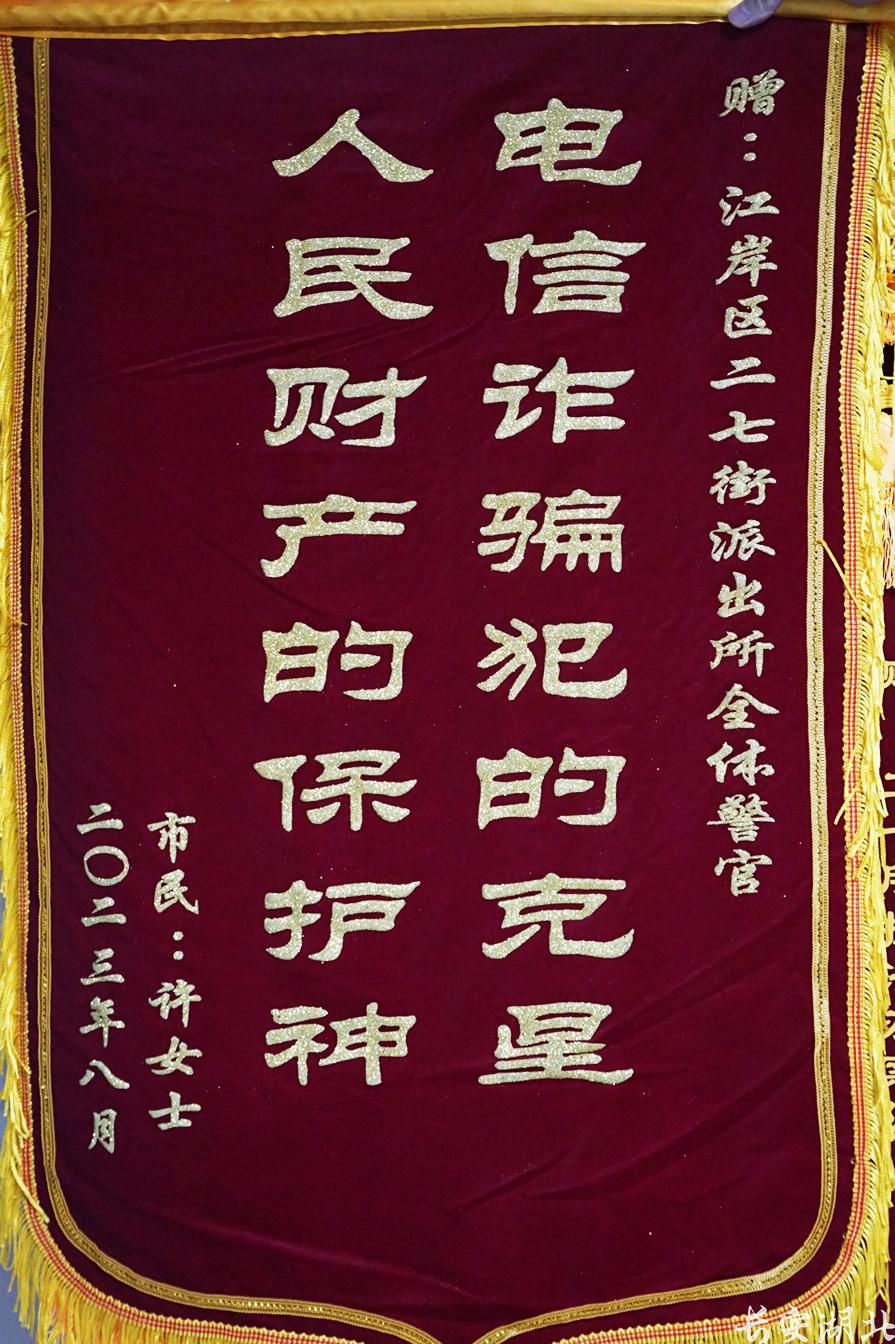 赠：江岸区二七街派出所全体警官
电信诈骗犯的克星
人民财产的保护神
市民：许女士
二〇二三年八月
长安湖北